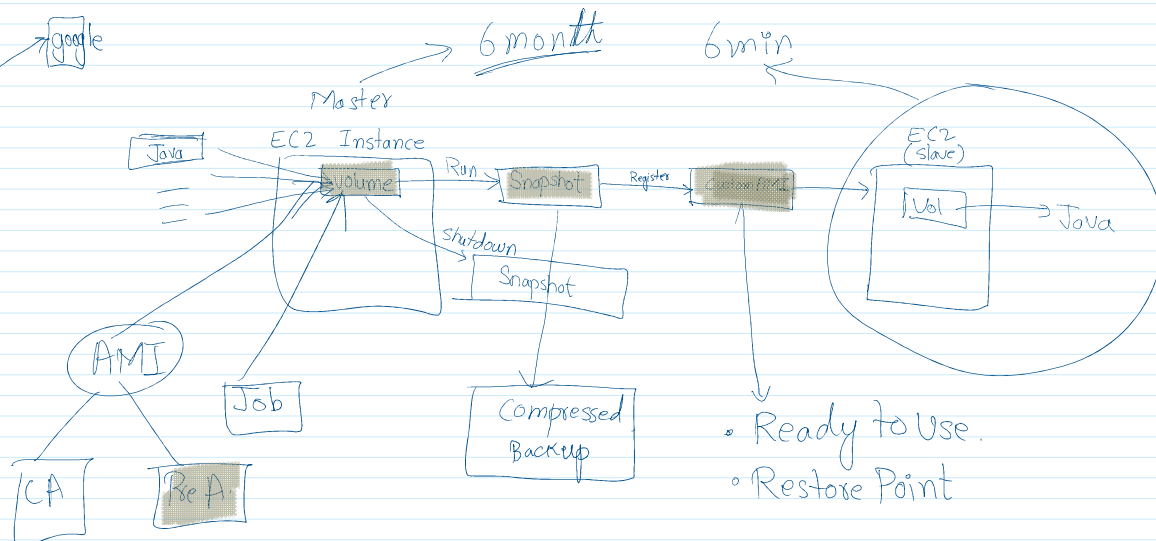 google
6 month
6 min
Master
EC2 Instance
Java
Volume
Run
Snapshot
Register
Custom AMI
EC2
(slave)
Vol
Java
Shutdown
Snapshot
AMI
Job
Compressed
Backup
• Ready to Use.
• Restore Point
CA
Pre A.